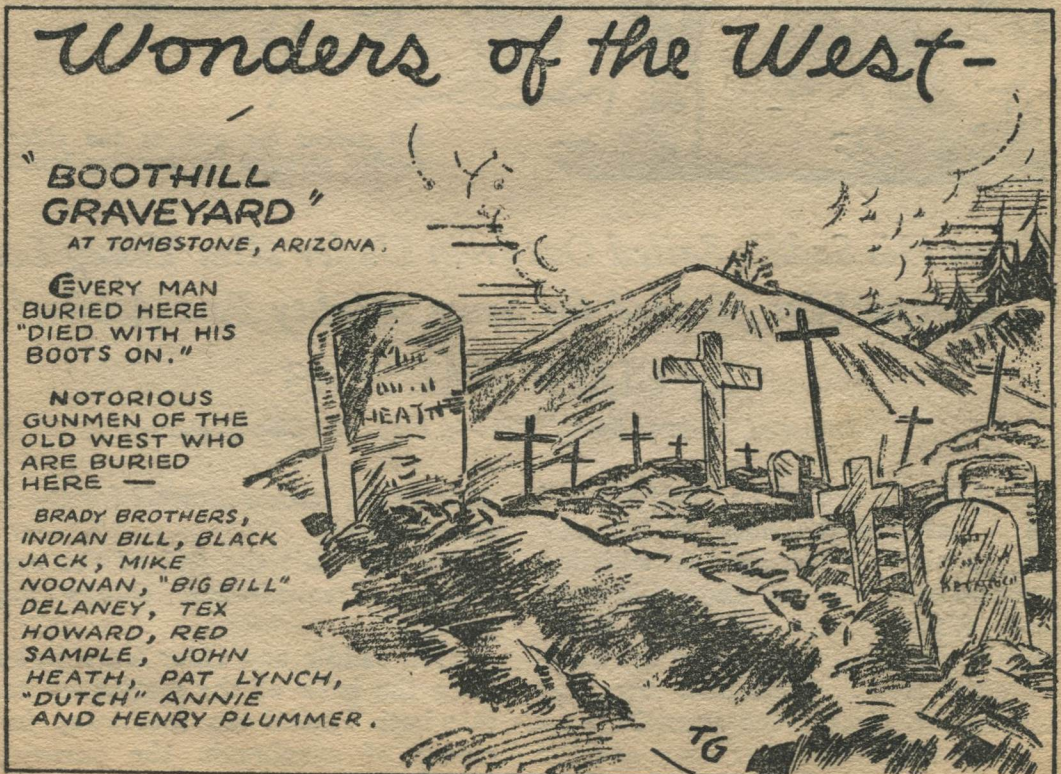 Wonders of the West—
"BOOTHILL
GRAVEYARD"
AT TOMBSTONE, ARIZONA.
EVERY MAN
BURIED HERE
"DIED WITH HIS
BOOTS ON."
NOTORIOUS
GUNMEN OF THE
OLD WEST WHO
ARE BURIED
HERE —
BRADY BROTHERS,
INDIAN BILL, BLACK
JACK, MIKE
NOONAN, "BIG BILL"
DELANEY, TEX
HOWARD, RED
SAMPLE, JOHN
HEATH, PAT LYNCH,
"DUTCH" ANNIE
AND HENRY PLUMMER.
TG